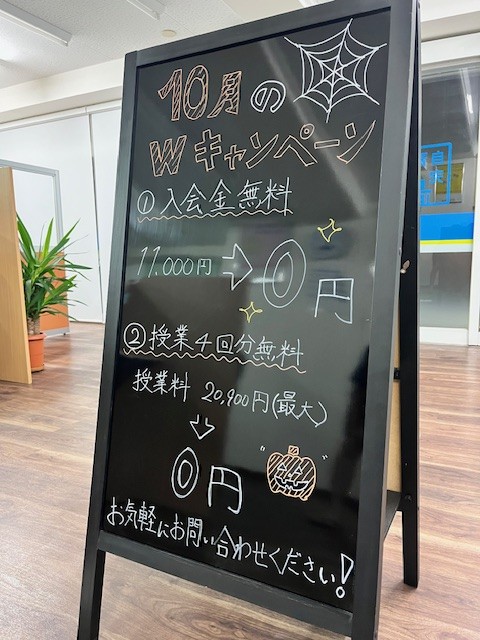 10月の
Wキャンペーン
①入会金無料
11.000円⇨0円
②授業4回分無料
授業料 20,900円(最大)
⇩
0円
お気軽にお問い合わせください!